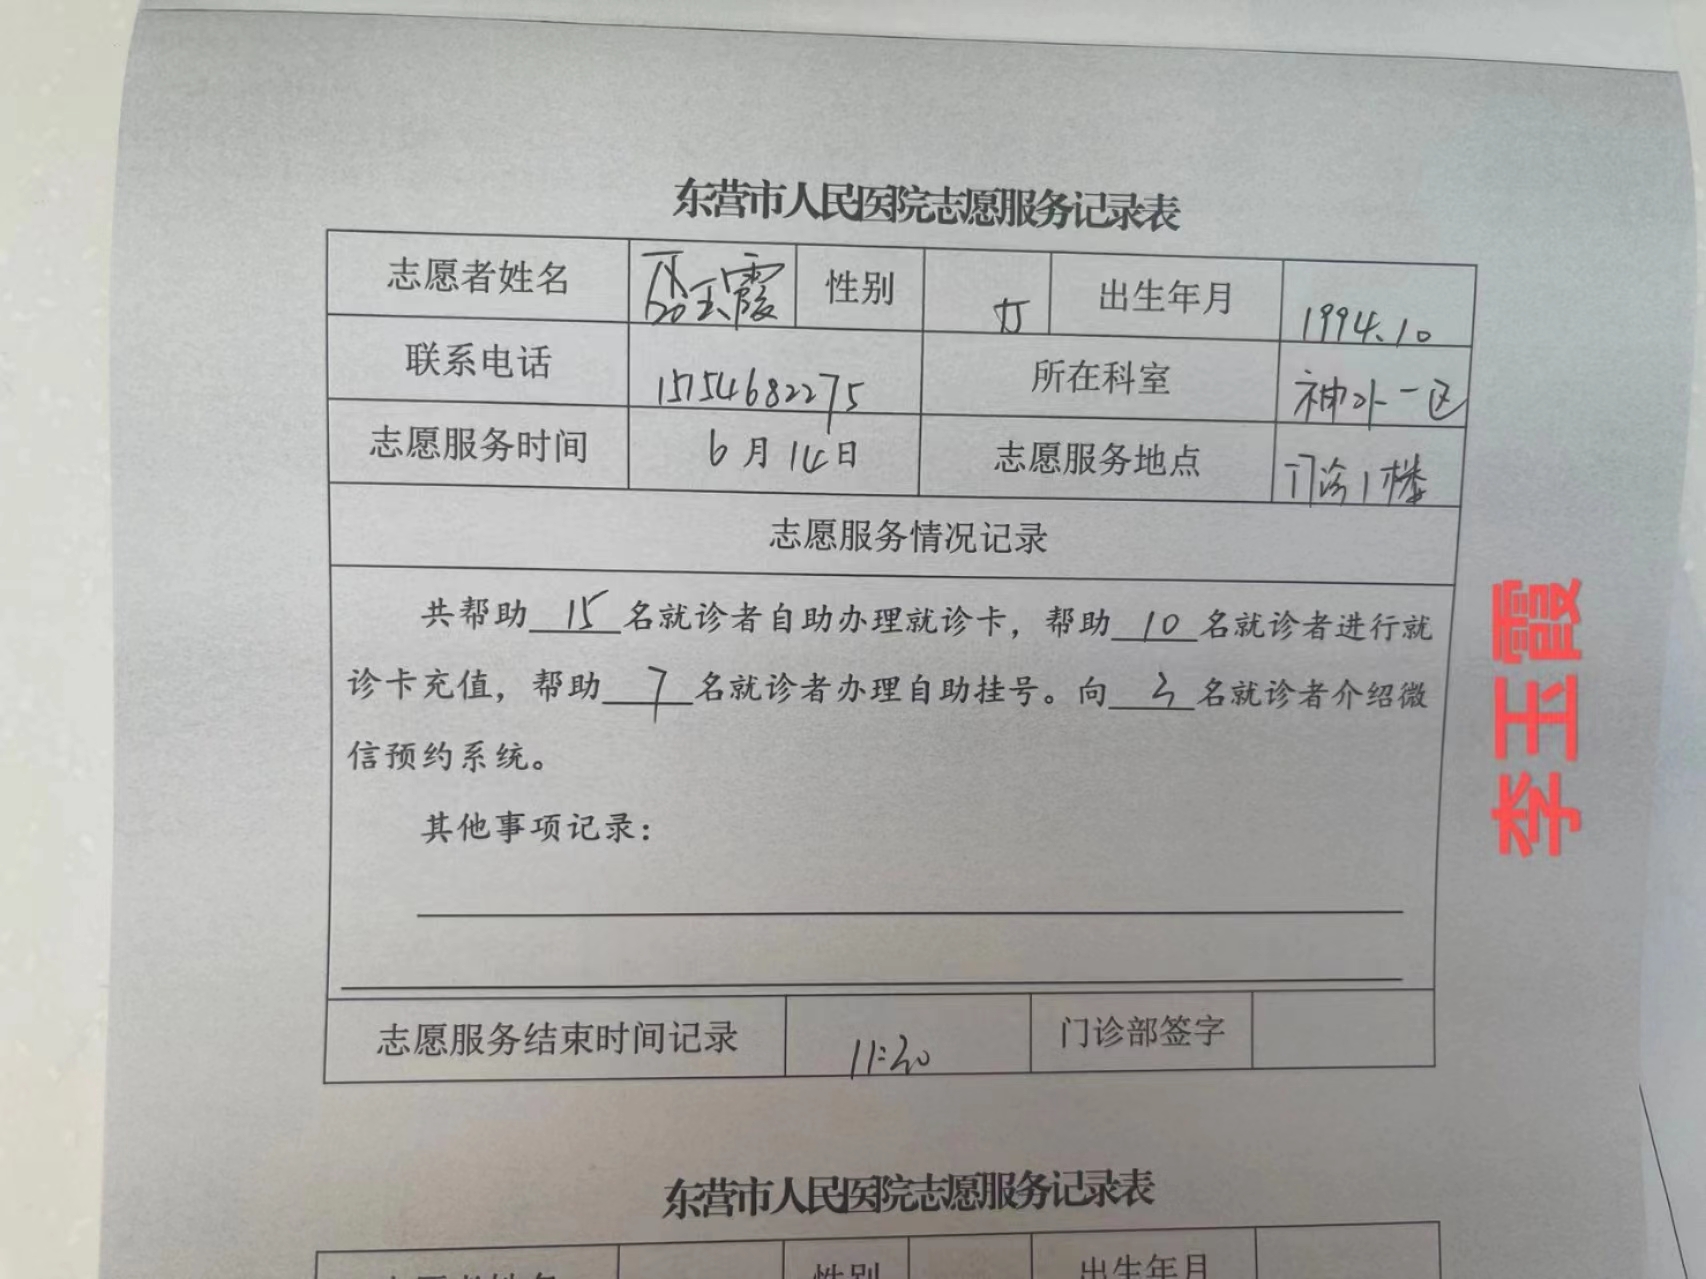 东营市人民医院志愿服务记录表
志愿者姓名 玉霞 性别 女 出生年月 1994.10
联系电话 15754682275 所在科室 神外一区
志愿服务时间 6月14日 志愿服务地点 门诊1楼
志愿服务情况记录
共帮助 15 名就诊者自助办理就诊卡，帮助 10 名就诊者进行就
诊卡充值，帮助 7 名就诊者办理自助挂号。向 3 名就诊者介绍微
信预约系统。
其他事项记录：
志愿服务结束时间记录 11:30 门诊部签字
李玉霞
东营市人民医院志愿服务记录表
性别 出生年月